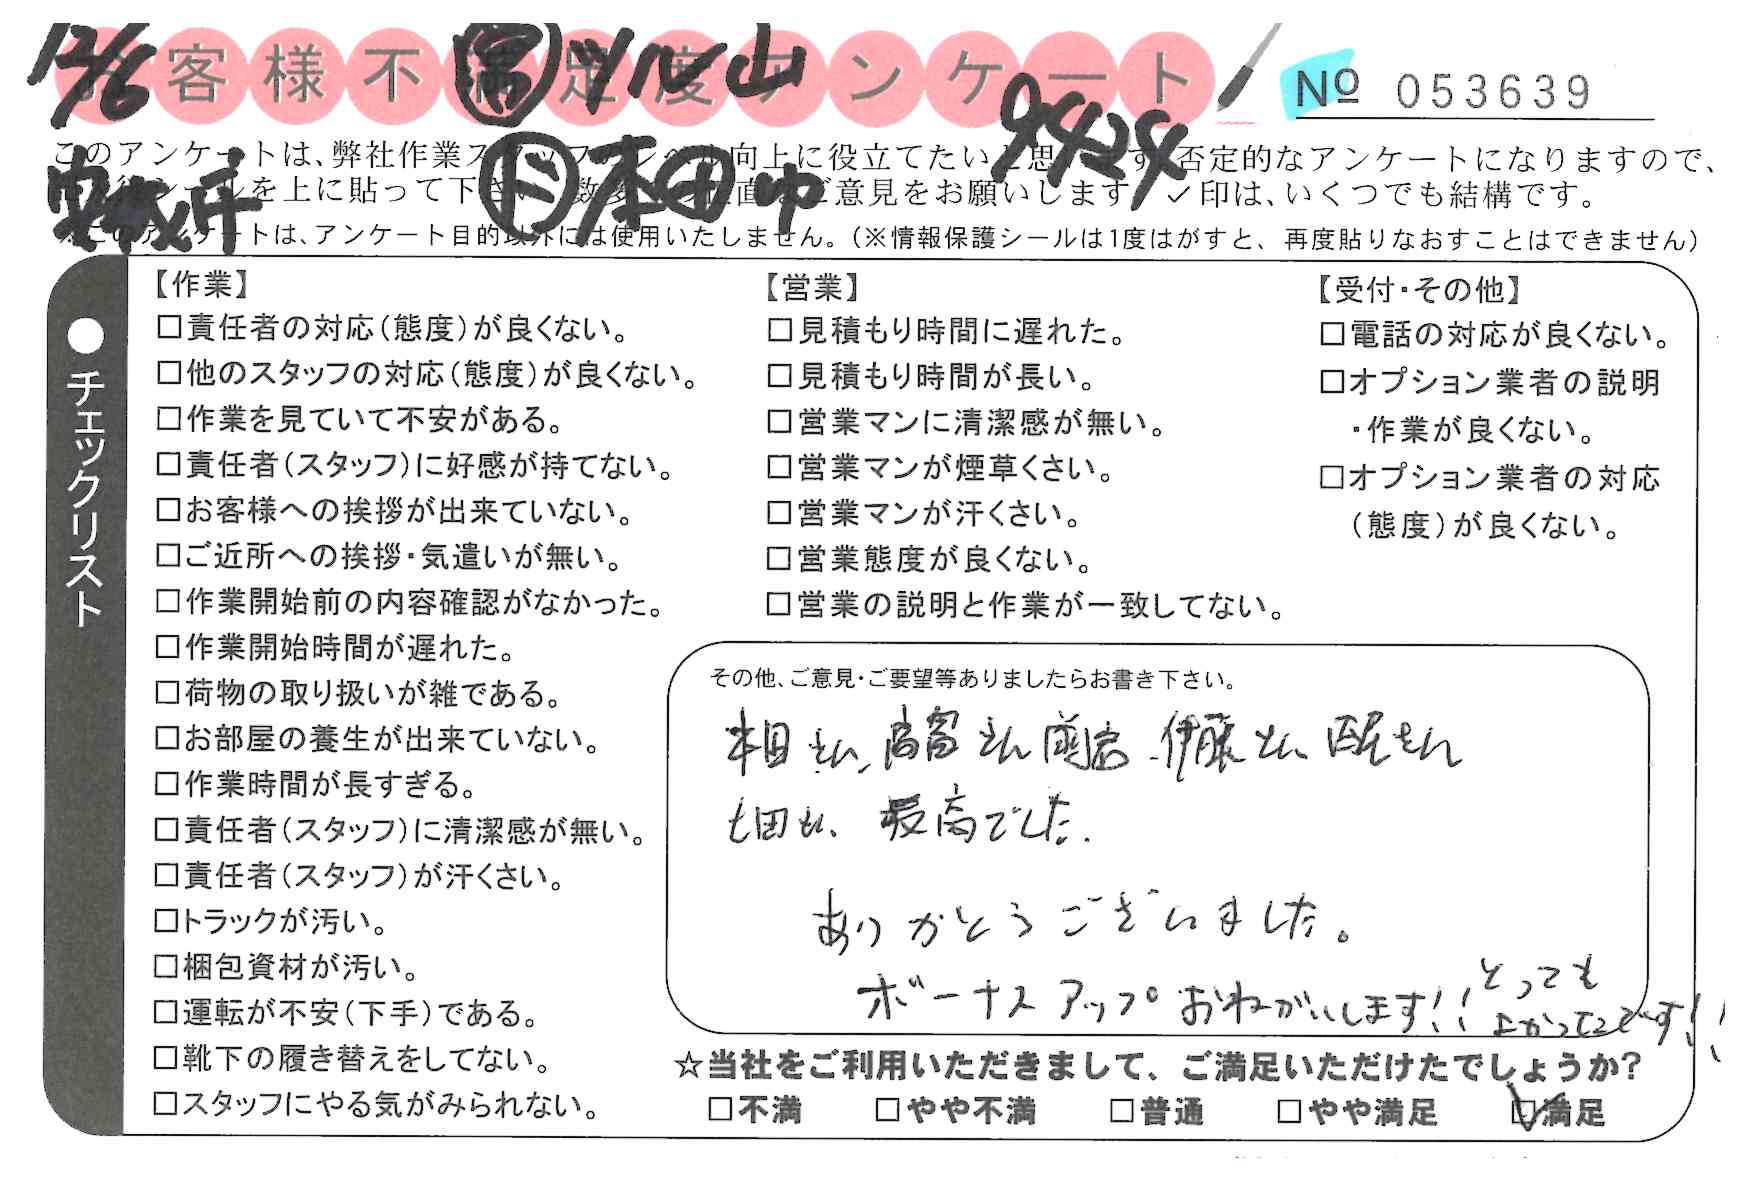 12/6 営 ツル山
お客様不満足度アンケート
№ 053639
9424
ド 本田中
このアンケートは、弊社作業スタッフのレベル向上に役立てたいと思います。否定的なアンケートになりますので、
シールを上に貼って下さい。ご意見をお願いします。✓印は、いくつでも結構です。
※このアンケートは、アンケート目的以外には使用いたしません。(※情報保護シールは1度はがすと、再度貼りなおすことはできません)
●チェックリスト
【作業】
□責任者の対応(態度)が良くない。
□他のスタッフの対応(態度)が良くない。
□作業を見ていて不安がある。
□責任者(スタッフ)に好感が持てない。
□お客様への挨拶が出来ていない。
□ご近所への挨拶・気遣いが無い。
□作業開始前の内容確認がなかった。
□作業開始時間が遅れた。
□荷物の取り扱いが雑である。
□お部屋の養生が出来ていない。
□作業時間が長すぎる。
□責任者(スタッフ)に清潔感が無い。
□責任者(スタッフ)が汗くさい。
□トラックが汚い。
□梱包資材が汚い。
□運転が不安(下手)である。
□靴下の履き替えをしてない。
□スタッフにやる気がみられない。
【営業】
□見積もり時間に遅れた。
□見積もり時間が長い。
□営業マンに清潔感が無い。
□営業マンが煙草くさい。
□営業マンが汗くさい。
□営業態度が良くない。
□営業の説明と作業が一致してない。
【受付・その他】
□電話の対応が良くない。
□オプション業者の説明
・作業が良くない。
□オプション業者の対応
(態度)が良くない。
その他、ご意見・ご要望等ありましたらお書き下さい。
本田さん、さん 伊藤さん、さん
最高でした.
ありがとうございました。
ボーナスアップおねがいします!!
とっても
よかったです!!
☆当社をご利用いただきまして、ご満足いただけたでしょうか?
□不満 □やや不満 □普通 □やや満足 ☑満足